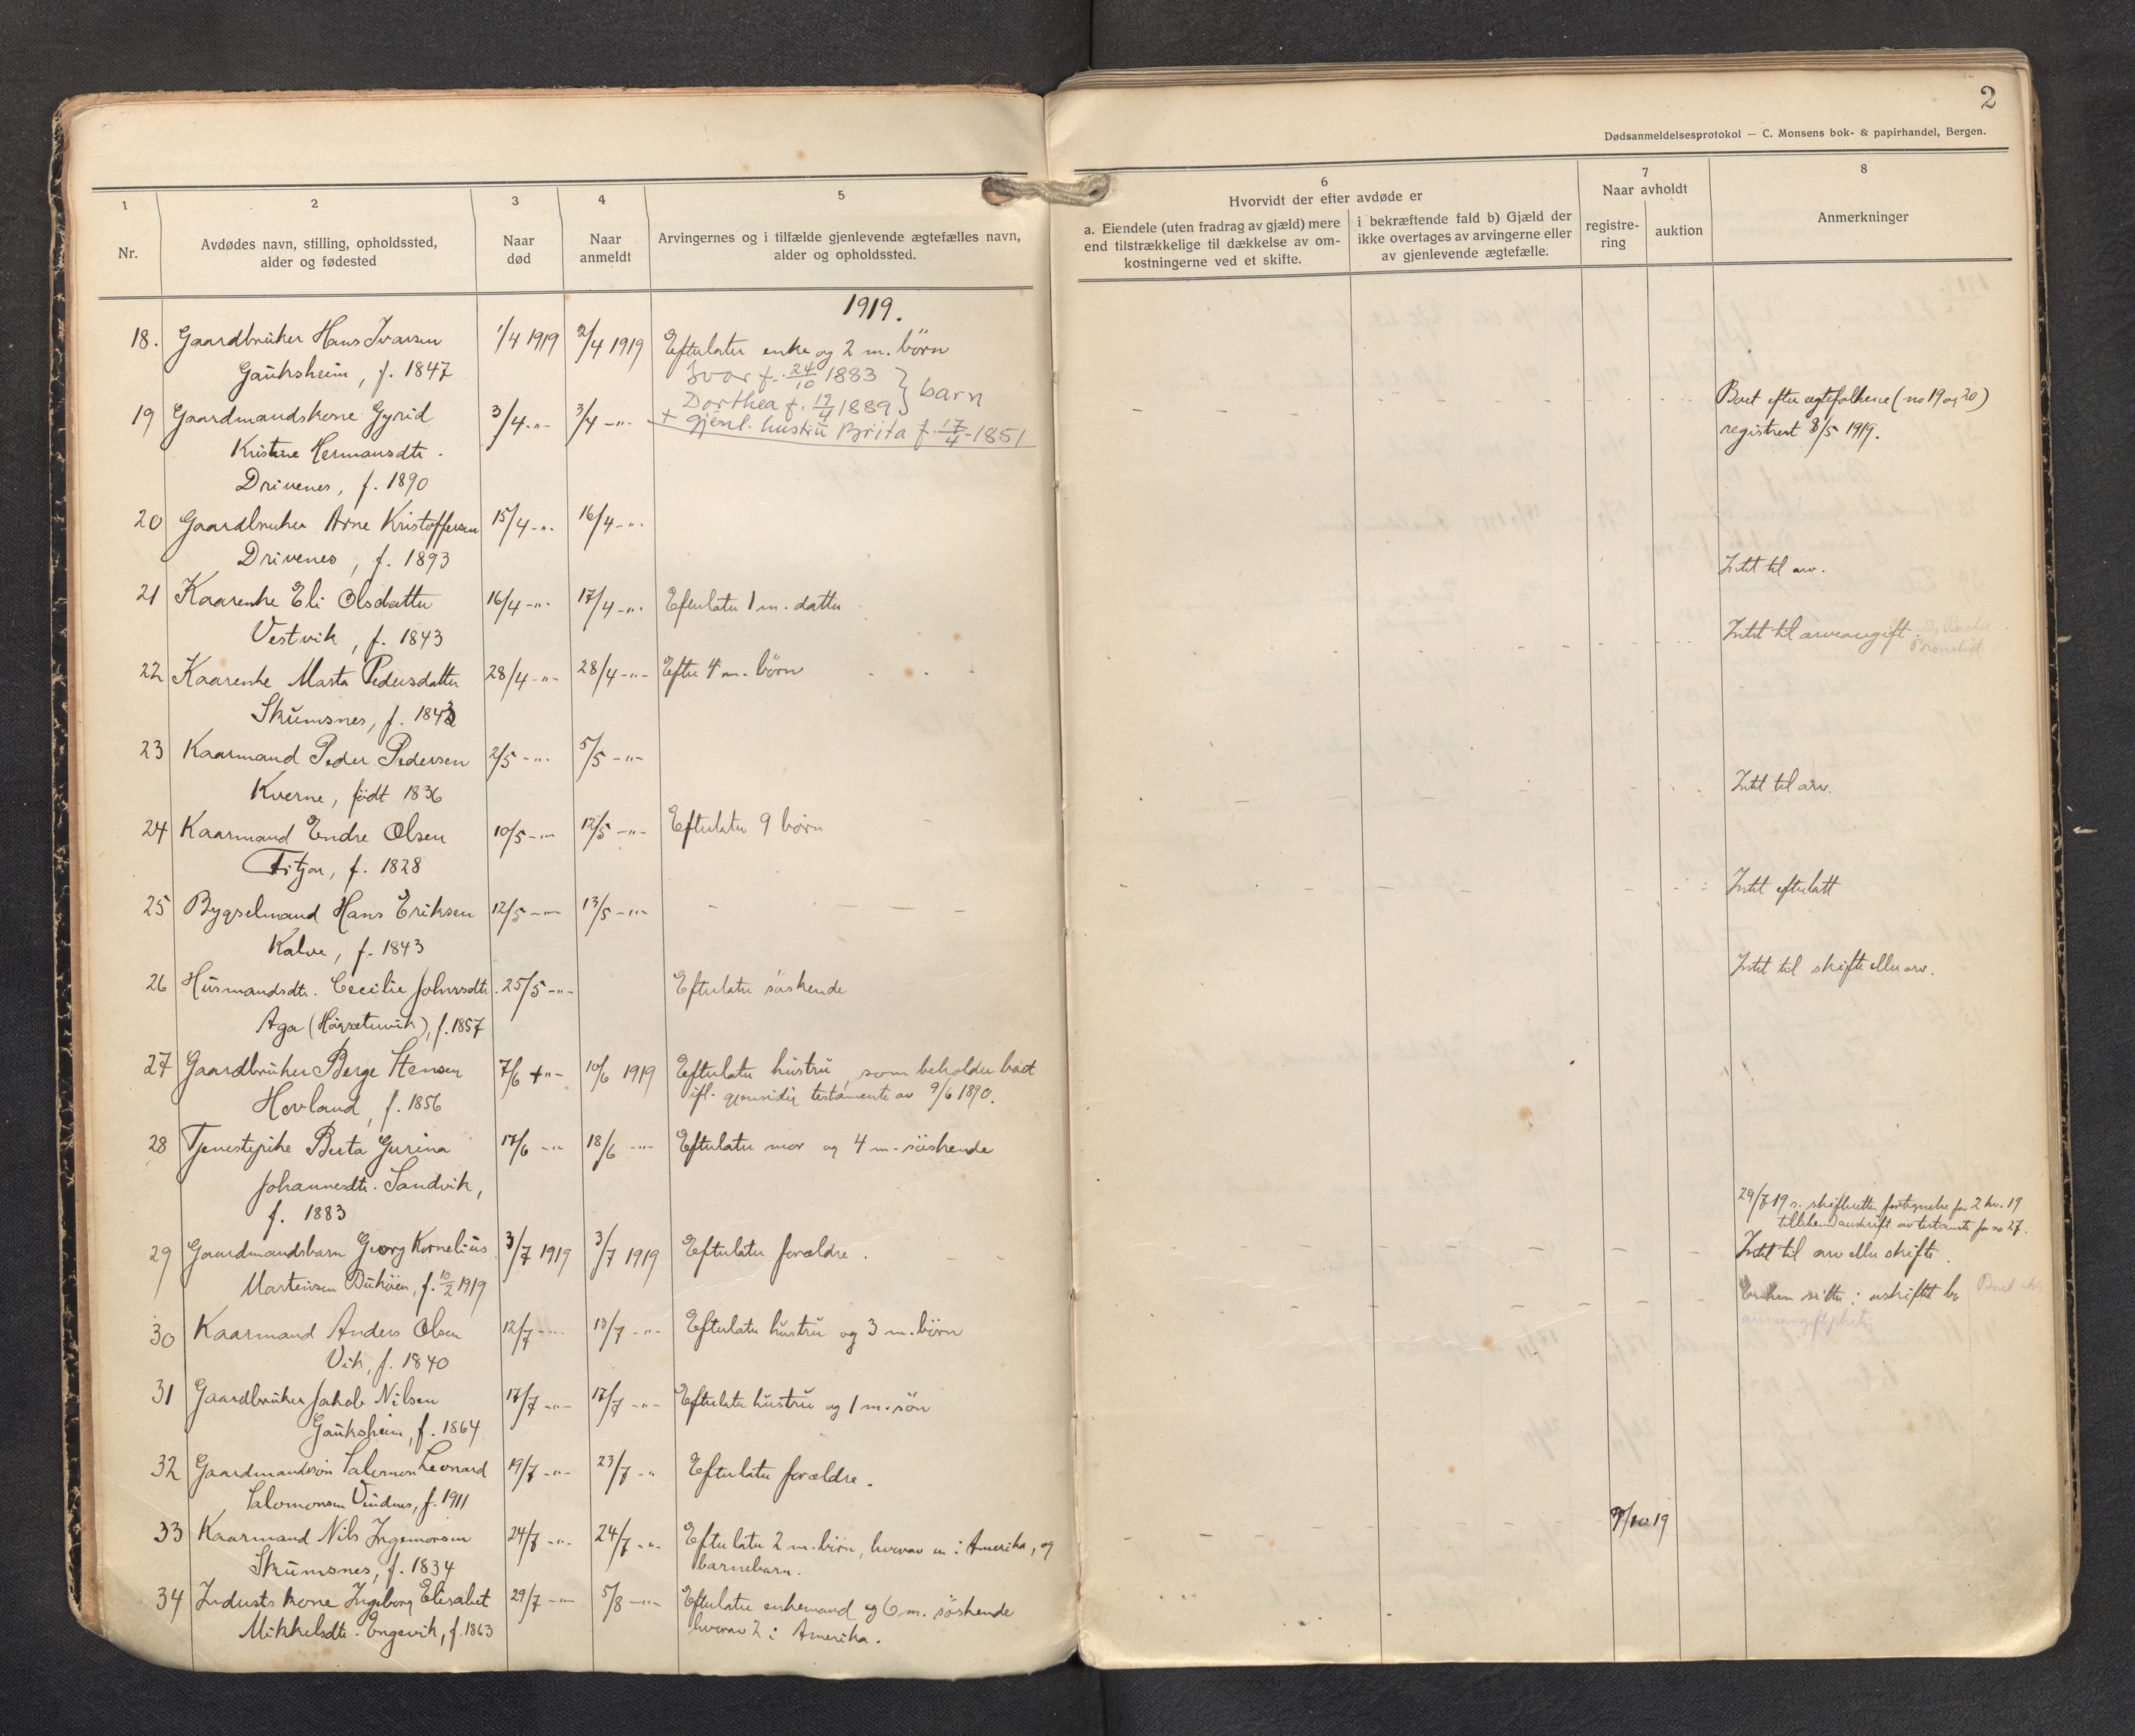 2
Dødsanmeldelsesprotokol — C. Monsens bok- & papirhandel, Bergen.
1
Nr.
2
Avdødes navn, stilling, opholdssted,
alder og fødested
3
Naar
død
4
Naar
anmeldt
5
Arvingernes og i tilfælde gjenlevende ægtefælles navn,
alder og opholdssted.
6
Hvorvidt der efter avdøde er
a. Eiendele (uten fradrag av gjæld) mere
end tilstrækkelige til dækkelse av om-
kostningerne ved et skifte.
i bekræftende fald b) Gjæld der
ikke overtages av arvingerne eller
av gjenlevende ægtefælle.
7
Naar avholdt
registre-
ring
auktion
8
Anmerkninger
1919.
18. Gaardbruker Hans Ivarsen 1/4 1919 2/4 1919 Efterlater enke og 2 m. börn
Gauksheim, f. 1847
Ivar f. 24/10 1883 } barn
Dorthea f. 19/4 1889
+ gjenl. hustru Brita f. 17/4 1851
19 Gaardmandskone Gyrid 3/4 -"- 3/4 -"-
Kristine Hermansdtr.
Drivenes, f. 1890
Boet efter egtefolkene (no 19 og 20)
registrert 8/5 1919.
20 Gaardbruker Arne Kristoffersen 15/4 -"- 16/4 -"-
Drivenes, f. 1893
Intet til arv.
21 Kaarenke Eli Olsdatter 16/4 -"- 17/4 -"- Efterlater 1 m. datter
Vestvik, f. 1843
Intet til arveavgift.
22 Kaarenke Marta Pedersdatter 28/4 -"- 28/4 -"- Efter 4 m. börn
Skumsnes, f. 1843
23 Kaarmand Peder Pedersen 2/5 -"- 5/5 -"-
Kverne, födt 1836
Intet til arv.
24 Kaarmand Endre Olsen 10/5 -"- 12/5 -"- Efterlater 9 börn
Fitjar, f. 1828
Intet efterlatt
25 Bygselmand Hans Eriksen 12/5 -"- 13/5 -"-
Kalve, f. 1843
Intet til skifte eller arv.
26 Husmandsdtr. Cecilie Johnsdtr. 25/5 -"- Efterlater söskende
Aga, f. 1857
27 Gaardbruker Berge Stensen 7/6 -"- 10/6 1919 Efterlater hustru, som beholder boet
Hovland, f. 1856 ifl. gjensidig testamente av 9/6 1890.
28 Tjenestepike Berta Gurina 17/6 -"- 18/6 -"- Efterlater mor og 4 m. söskende
Johannesdtr. Sandvik,
f. 1883
29/7 19 s. skifteretten fortegnelse for 2 kv. 19
tillikemed avskrift av testamente for no 27.
29 Gaardmandsbarn Georg Kornelius 3/7 1919 3/7 1919 Efterlater forældre.
Martinsen Duköien, f. 10/2 1919
Intet til arv eller skifte.
Enken sitter i uskiftet bo
30 Kaarmand Anders Olsen 12/7 -"- 13/7 -"- Efterlater hustru og 3 m. börn
Vik, f. 1840
31 Gaardbruker Jakob Nilsen 17/7 -"- 17/7 -"- Efterlater hustru og 1 m. sön
Gauksheim, f. 1864
32 Gaardmandssön Salomon Leonard 19/7 -"- 23/7 -"- Efterlater forældre.
Salomonsen Vindnes, f. 1911
33 Kaarmand Nils Ingemorsen 24/7 -"- 24/7 -"- Efterlater 2 m. börn, hvorav en i Amerika, og
Skumsnes, f. 1834 barnebarn.
9/10 19
34 Industr. kone Ingeborg Elisabet 29/7 -"- 5/8 -"- Efterlater enkemand og 6 m. söskende
Mikkelsdtr. Engevik, f. 1863 hvorav 2 i Amerika.